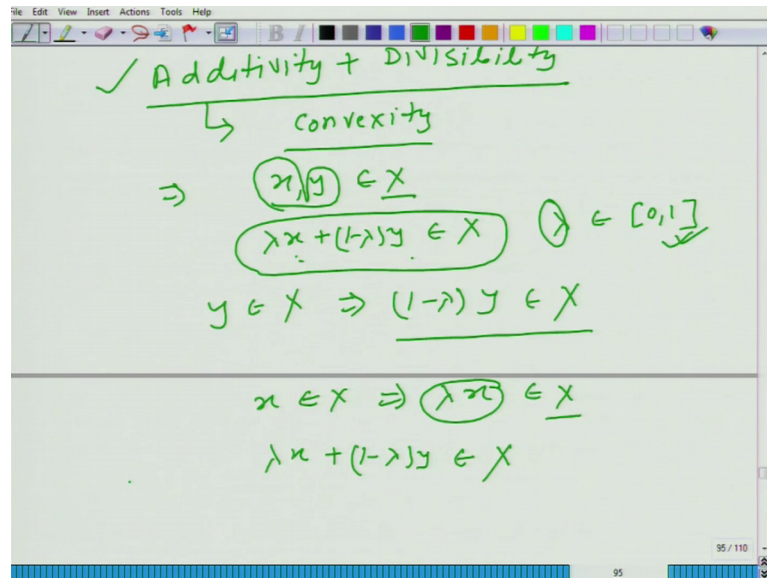 ile Edit View Insert Actions Tools Help
B I
✓ Additivity + Divisibility
↳ Convexity
⇒ x, y ∈ X
λx + (1-λ)y ∈ X λ ∈ [0,1]
y ∈ X ⇒ (1-λ) y ∈ X
x ∈ X ⇒ λx ∈ X
λx + (1-λ)y ∈ X
95 / 110
95